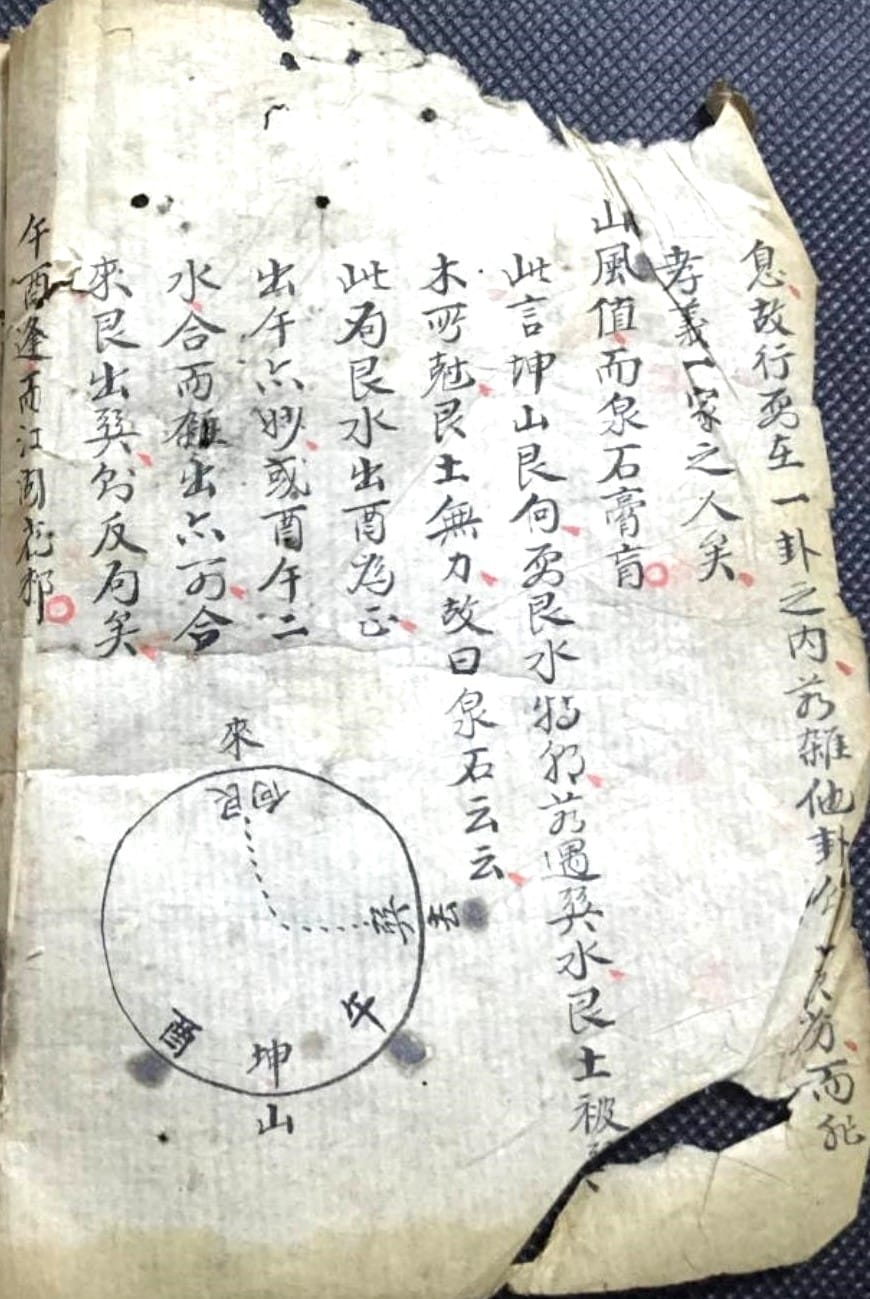 息故行要在一卦之内若雜他卦
而能
孝義一家之人矣
山風值而泉石膏肓
此言坤山艮向要艮水特朝若遇巽水艮土被
木所尅艮土無力故曰泉石云云
此局艮水出酉為正
出午亦妙或酉午二
水合而雜出亦可合
來艮出巽則反局矣
午酉逢而江湖花
來
向艮
巽去
午
酉
坤
山